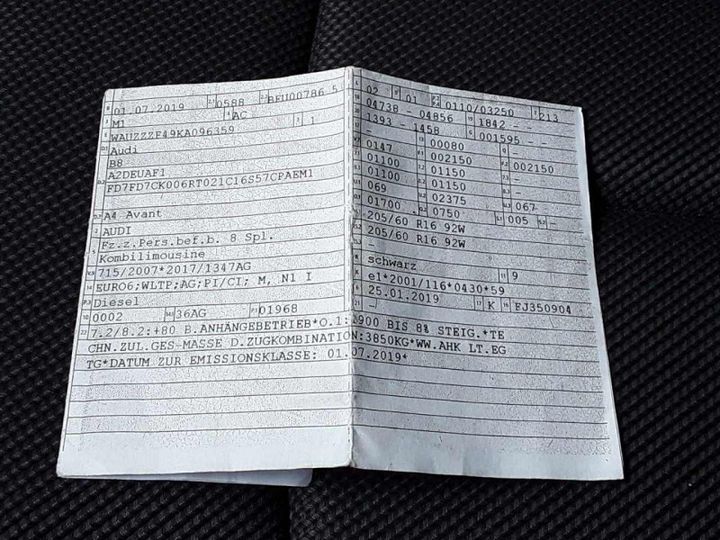 01.07.2019 0588 BFU00786 5
M1 AC
WAUZZZF49KA096359 1
Audi
B8
A2DEUAF1
FD7FD7CK006RT021C16S57CPAEM1
A4 Avant
AUDI
Fz.z.Pers.bef.b. 8 Spl.
Kombilimousine
715/2007*2017/1347AG
EURO6;WLTP;AG;PI/CI; M, N1 I
Diesel
0002 36AG 01968
02 01 0110/03250 213
04738 - 04856 1842 - -
1393 - 1458 001595 - -
-
0147 00080 -
01100 002150 002150
01100 01150 -
069 01150 -
01700 02375 067
205/60 R16 92W 0750 005 -
205/60 R16 92W
-
schwarz
- 9
e1*2001/116*0430*59
25.01.2019 K FJ350904
-
7.2/8.2:+80 B.ANHÄNGEBETRIEB*O.1:1900 BIS 8% STEIG.*TE
CHN.ZUL.GES-MASSE D.ZUGKOMBINATION:3850KG*WW.AHK LT.EG
TG*DATUM ZUR EMISSIONSKLASSE: 01.07.2019*